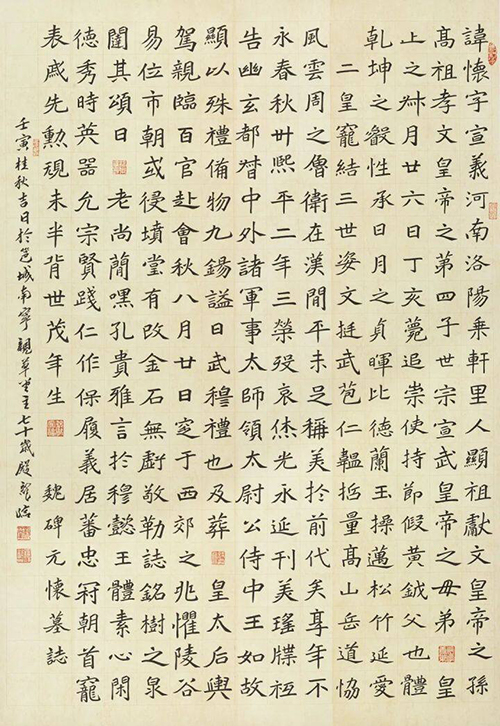 諱懷字宣義河南洛陽乗軒里人顯祖獻文皇帝之孫
髙祖孝文皇帝之第四子世宗宣武皇帝之母弟 皇
上之叔月廿六日丁亥薨追崇使持節假黃鉞父也體
乹坤之叡性承日月之貞暉比德蘭玉操邁松竹延愛
二皇寵結三世姿文挺武苞仁韞哲量髙山岳道協
風雲周之魯衛在漢間平未足稱美於前代矣享年不
永春秋卅熙平二年三榮殁哀烋光永延刊美瑤牒
告幽玄都督中外諸軍事太師領太尉公侍中王如故
顯以殊禮備物九錫謚曰武穆禮也及葬 皇太后輿
駕親臨百官赴會秋八月廿日窆于西郊之兆懼陵谷
易位市朝或侵墳堂有改金石無虧敬勒誌銘樹之泉
闥其頌曰 老尚簡嘿孔貴雅言於穆懿王體素心閑
德秀時英器允宗賢踐仁作保履義居蕃忠冠朝首寵
表戚先勲覌未半背世茂年生 魏碑元懷墓誌
壬寅桂秋吉日於邕城南寧親草堂主七十歲臨